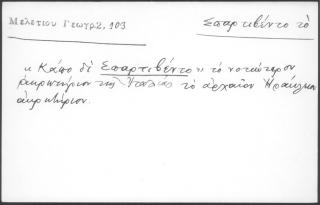 Μελετίου Γεωγρ2, 103
Σπαρτιβέντο τό
" Κάπο δί Σπαρτιβέντο " τό νοτιώτερον
ἀκρωτήριον τῆς Ἰταλίας τό ἀρχαῖον Ἡράκλειον
ἀκρωτήριον.